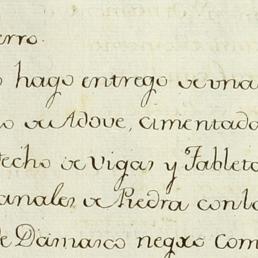 erro.
o hago entrego de vna
o de Adove, cimentado
techo de Vigas y Tableta
anales de Piedra con lo
de Damasco negro com